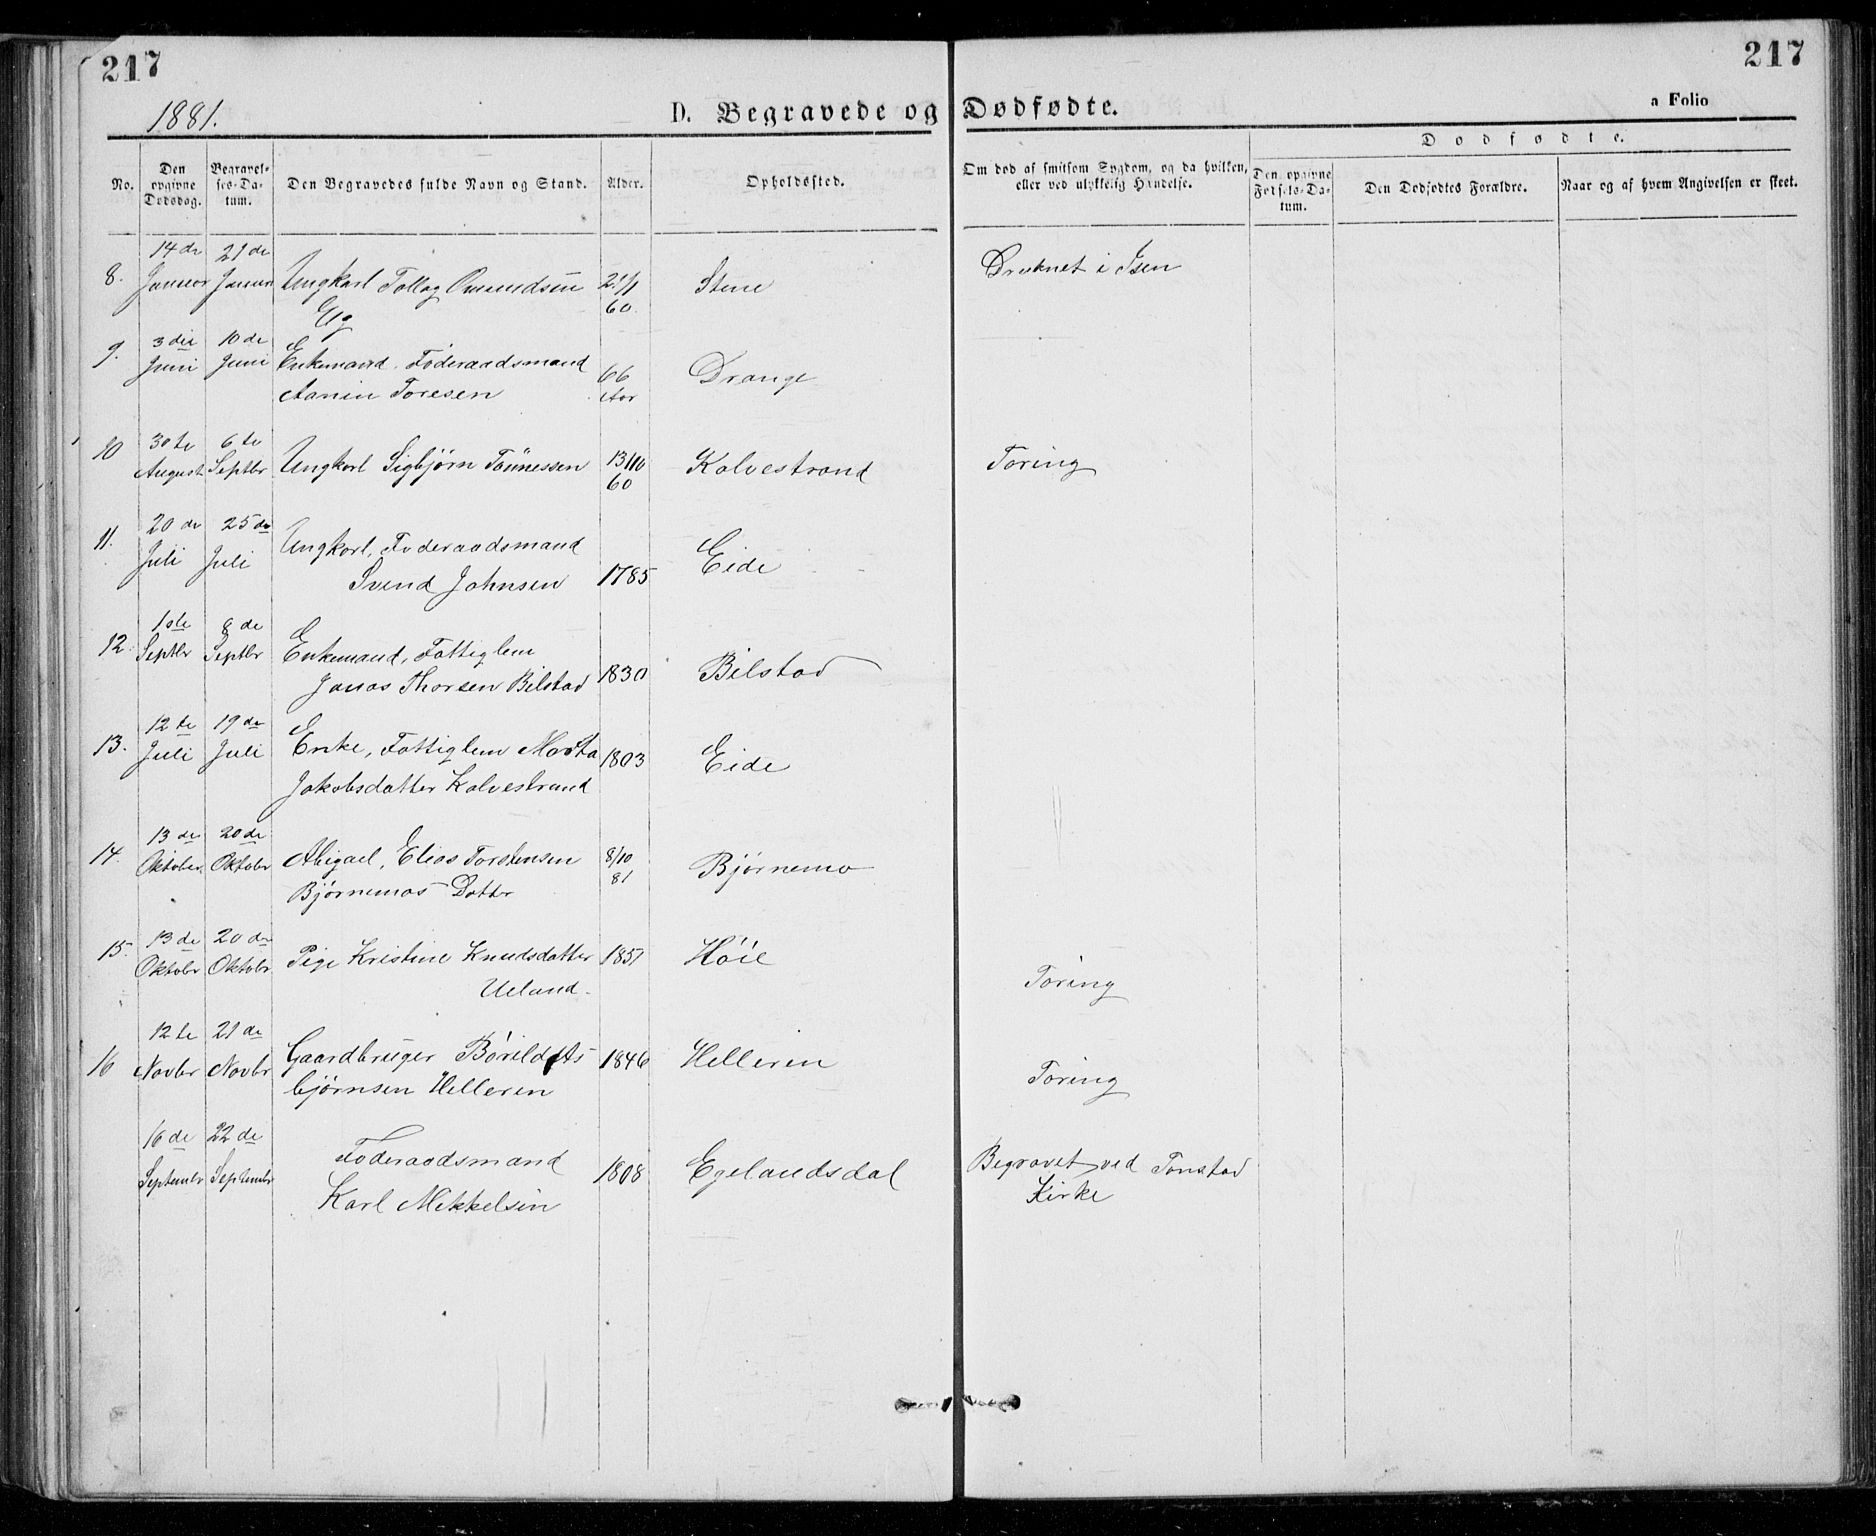 217
217
1881.
D. Begravede og Dødfødte.
a Folio
Dødfødte.
No.
Den opgivne Dødsdag.
Begravelses-Datum.
Den Begravedes fulde Navn og Stand.
Alder.
Opholdssted.
Om død af smitsom Sygdom, og da hvilken, eller ved ulykkelig Hændelse.
Den opgivne Fødsels-Datum.
Den Dødfødtes Forældre.
Naar og af hvem Angivelsen er skeet.
14de 21de
8. Januar Januar Ungkarl Tollag Omundsen 21/1 Stene Druknet i Isen
Eg 60.
3die 10de
9. Juni Juni Enkemand, Føderaadsmand 66 Drange
Aanen Toresen Aar
30te 6te
10 August Septbr Ungkarl Sigbjørn Tønnessen 13/10 Kalvestrand Tæring
60
20de 25de
11. Juli Juli Ungkarl, Føderaadsmand Eide
Svend Johnsen 1785
1ste 8de
12. Septbr Septbr Enkemand, Fattiglem
Jonas Thorsen Bilstad 1830 Bilstad
12te 19de
13. Juli Juli Enke, Fattiglem Marta 1803 Eide
Jakobsdatter Kalvestrand
13de 20de
14. Oktober Oktobr Abigael, Elias Torstensen 8/10 Bjørnemo
Bjørnemos Datter 81
13de 20de
15. Oktobr Oktobr Pige Kristine Knudsdatter 1851 Høie
Ueland. Tæring
12te 21de
16 Novbr Novbr Gaardbruger Børild As 1846 Helleren
bjørnsen Helleren Tæring
16de 22de
Septembr Septembr Føderaadsmand 1808 Egelandsdal Begravet ved Tonstad
Karl Mikkelsen Kirke